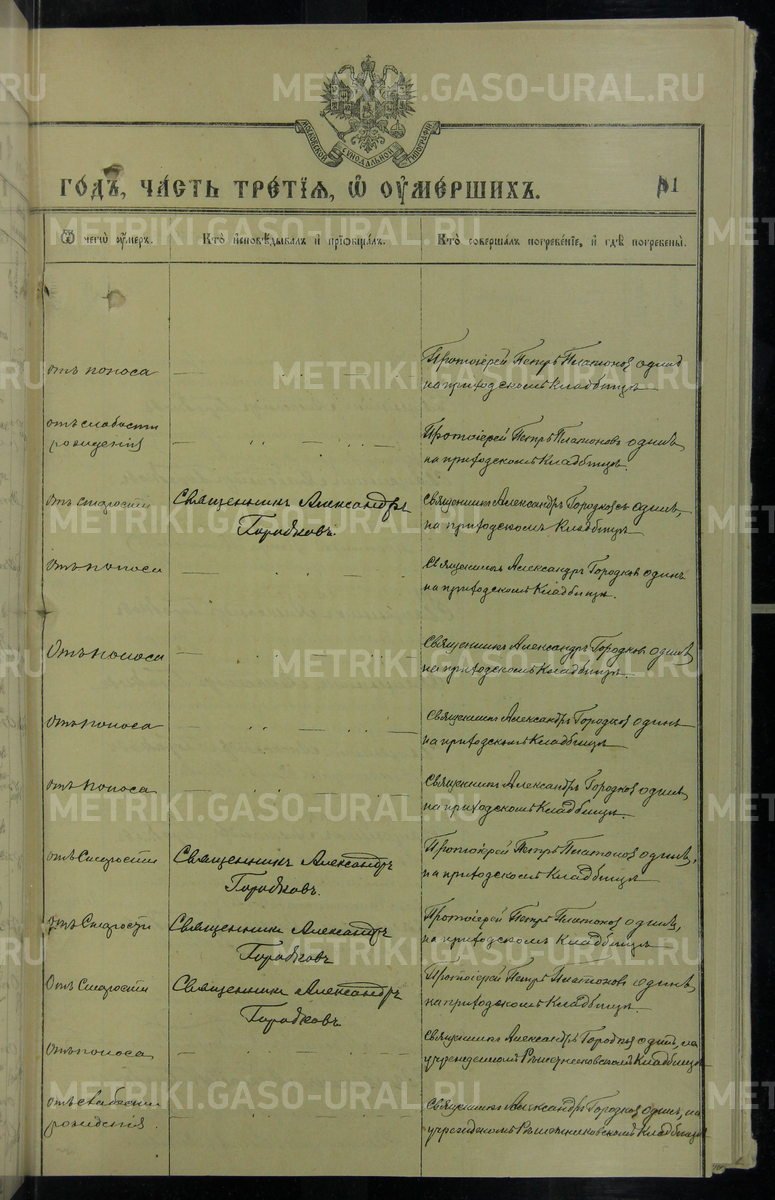 METRIKI.GASO-URAL.RU
МОСКОВСКОЙ СѴНОДАЛЬНОЙ ТИПОГРАФІИ
ГОДЪ, ЧАСТЬ ТРЕТІѦ, Ѡ ОУМЕРШИХЪ.
91
Ѿ чегѡ оумеръ.
Кто исповѣдывалъ и пріобщалъ.
Кто совершалъ погребеніе, и гдѣ погребены.
отъ поноса
Протоіерей Петръ Платонов один
на приходскомъ Кладбищѣ
отъ слабости
рожденія
Протоіерей Петръ Платоновъ одинъ,
на приходскомъ Кладбищѣ.
отъ старости
Священникъ Александръ
Городковъ.
Священникъ Александръ Городковъ одинъ,
на приходскомъ Кладбищѣ
отъ поноса
Священникъ Александръ Городков одинъ
на приходскомъ Кладбищѣ.
Отъ поноса
Священникъ Александръ Городков одинъ,
на приходскомъ Кладбищѣ.
отъ поноса
Священникъ Александръ Городков одинъ
на приходскомъ Кладбищѣ
отъ поноса
Священникъ Александръ Городков одинъ,
на приходскомъ Кладбищѣ.
отъ Старости
Священникъ Александръ
Городковъ.
Протоіерей Петръ Платонов одинъ,
на приходскомъ Кладбищѣ
отъ Старости
Священникъ Александръ
Городковъ
Протоіерей Петръ Платонов одинъ,
на приходскомъ Кладбищѣ
Отъ Старости
Священникъ Александръ
Городковъ
Протоіерей Петръ Платонов одинъ,
на приходскомъ Кладбищѣ.
отъ поноса
Священникъ Александръ Городков один, на
учрежденномъ Кладбищѣ
отъ слабости
рожденія.
Священникъ Александръ Городков одинъ, на
Кладбищѣ